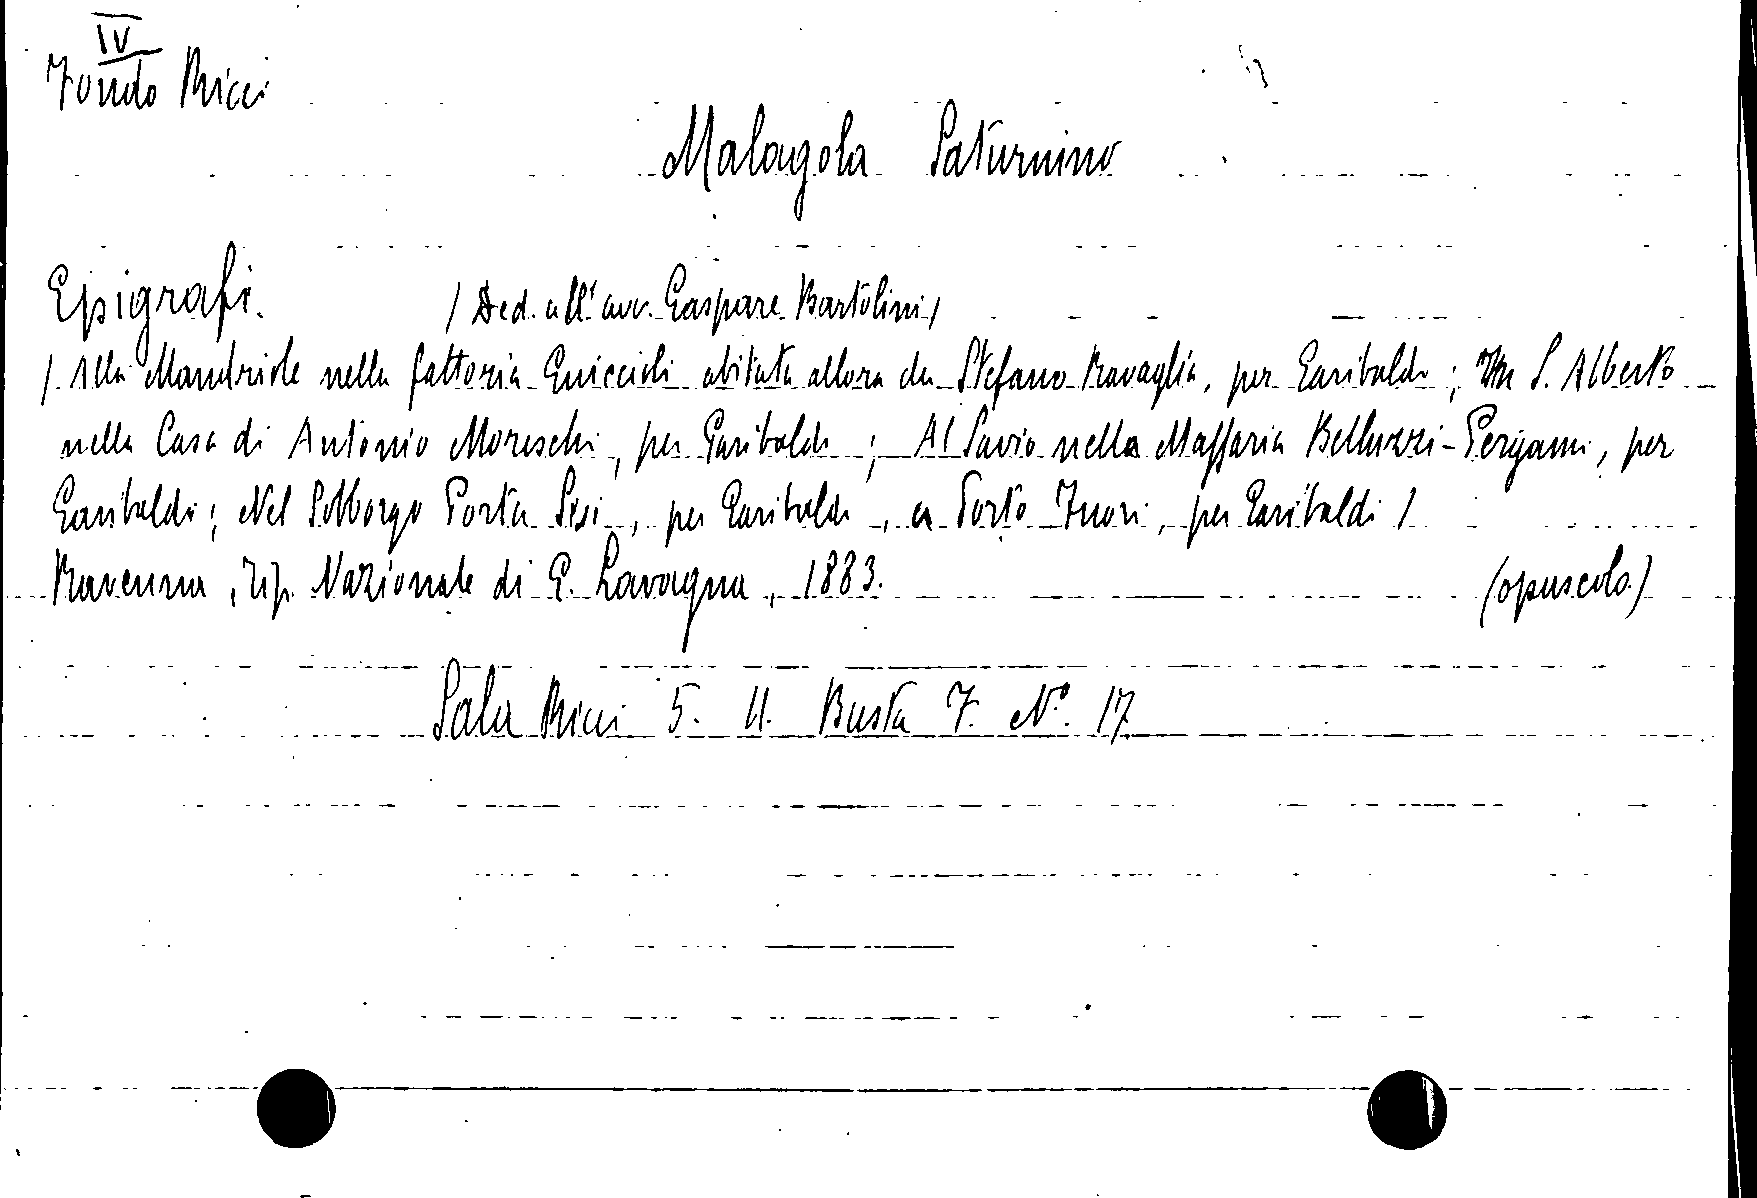 IV
Fondo Ricci
Malagola Saturnino
Epigrafi. / Ded. all' avv. Gaspare Bartolini /
/ Alla Mandriole nella fattoria Guiccioli abitata allora da Stefano Ravaglia, per Garibaldi ; In S. Alberto
nella Casa di Antonio Moreschi, per Garibaldi ; Al Savio nella Maffaria Belluzzi-Pergami, per
Garibaldi ; Nel Sobborgo Porta Sisi, per Garibaldi, a Porto Fuori, per Garibaldi /
Ravenna, Tip. Nazionale di E. Lavagna, 1883. (opuscolo)
Sala Ricci 5. U. Busta 7. N.° 17.